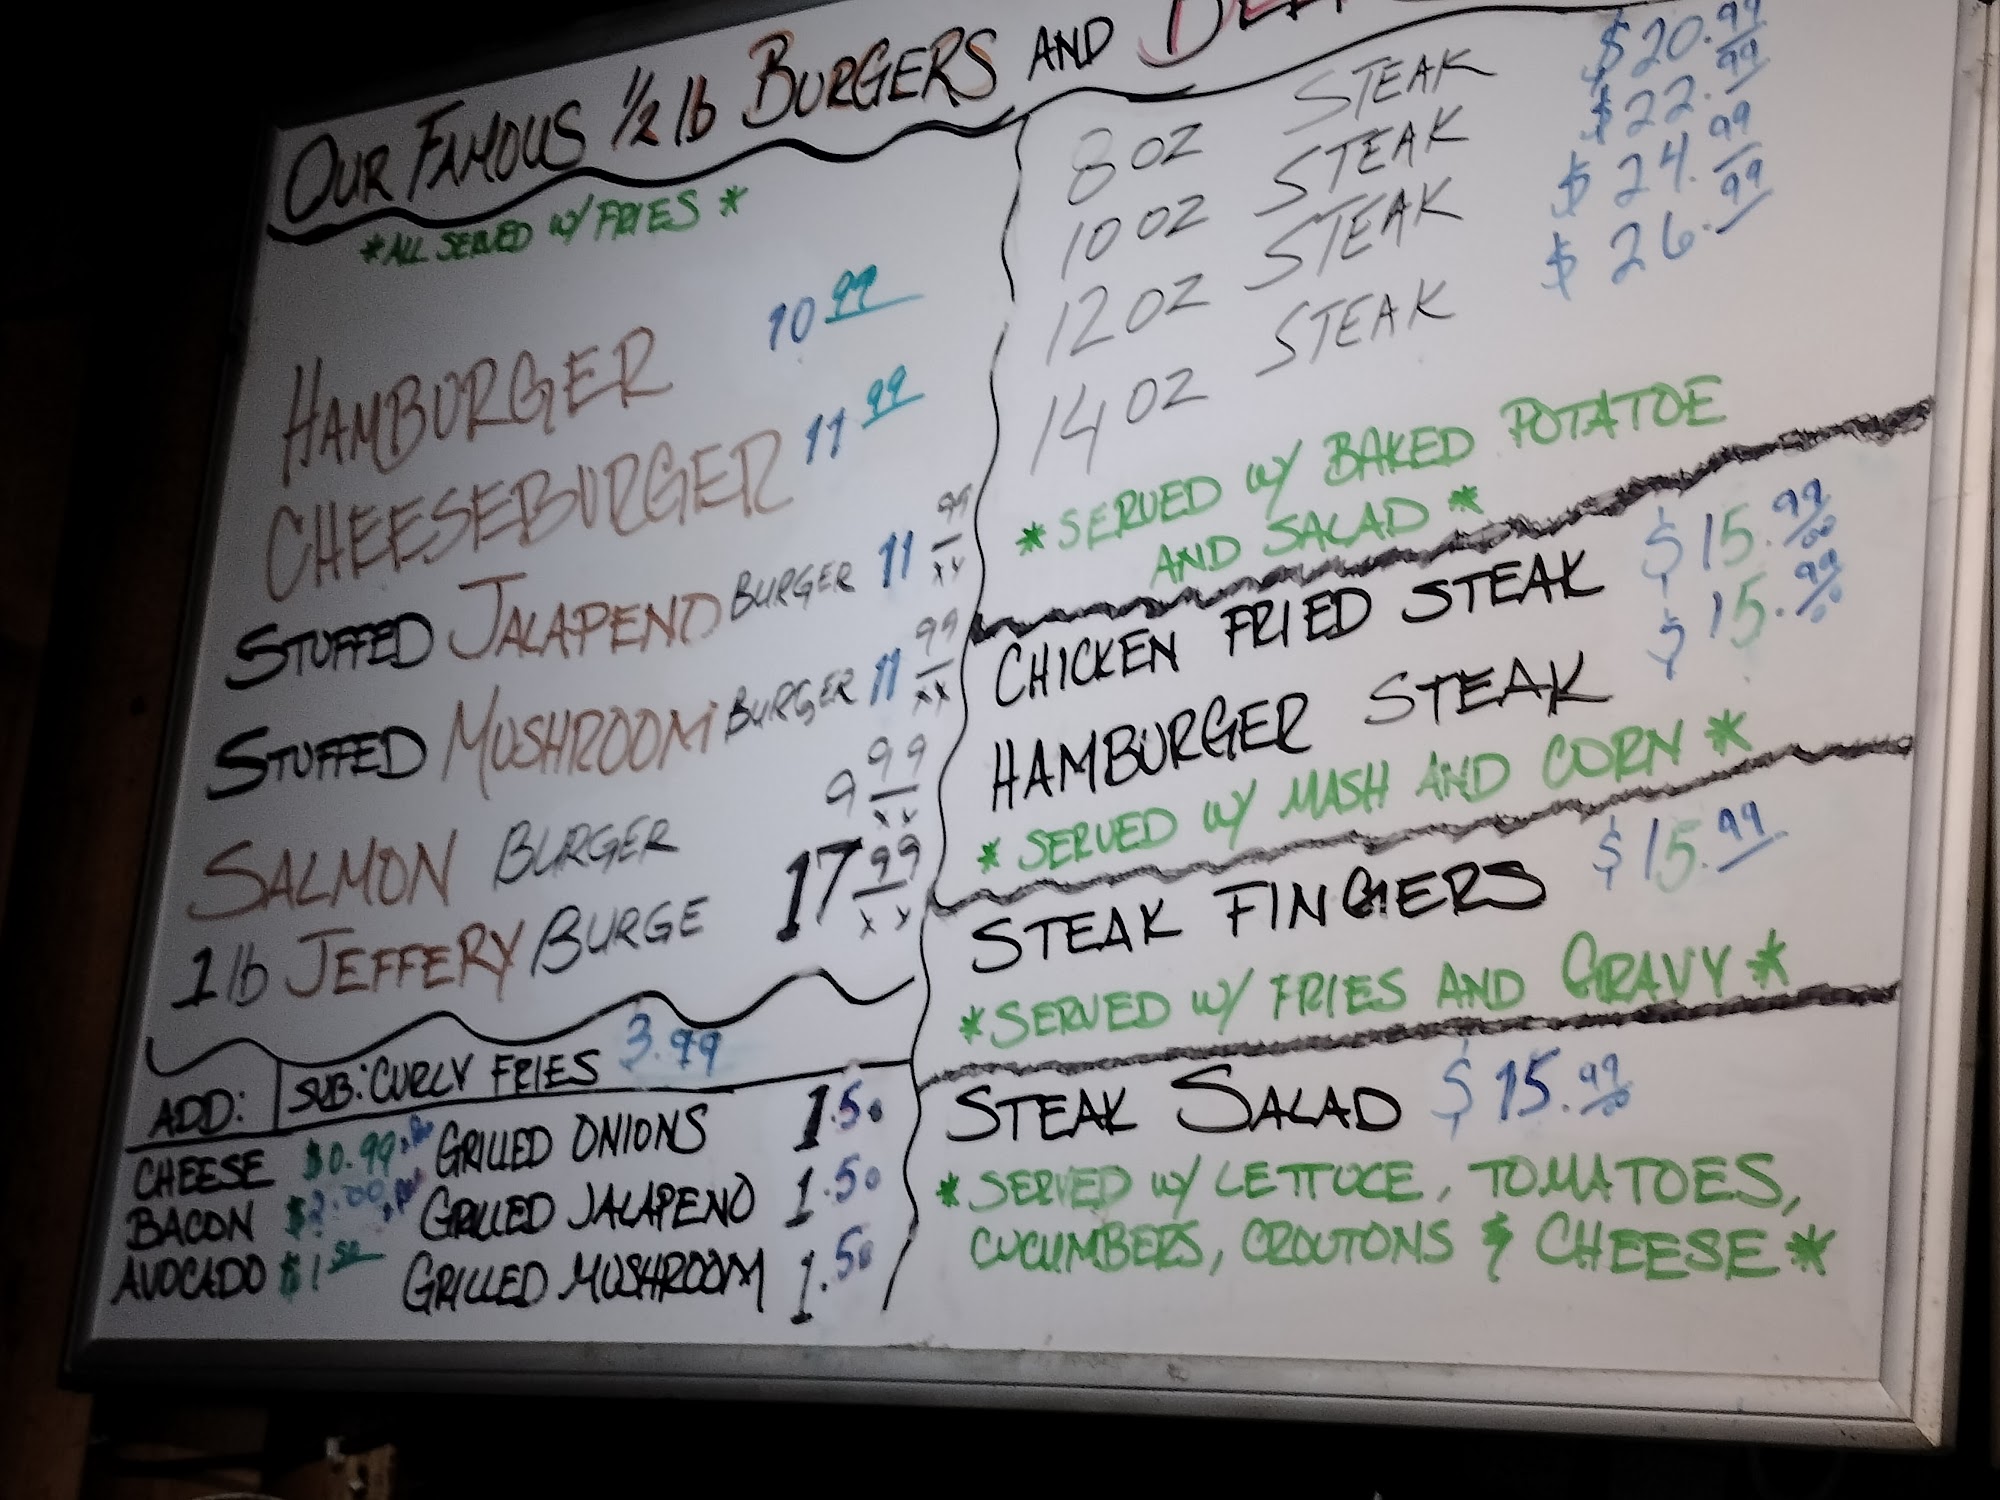 OUR FAMOUS 1/2 lb BURGERS AND
*ALL SERVED W/ FRIES *
HAMBURGER 10 99
CHEESEBURGER 11 99
STUFFED JALAPENO BURGER 11 99 xx
STUFFED MUSHROOM BURGER 11 99 xx
SALMON BURGER 9 99 xx
1 lb JEFFERY BURGE 17 99 xx
ADD: SUB: CURLY FRIES 3.99
CHEESE $0.99 GRILLED ONIONS 1.50
BACON $2.00 GRILLED JALAPENO 1.50
AVOCADO $1 50 GRILLED MUSHROOM 1.50
8 OZ STEAK $20.99
10 OZ STEAK $22.99
12 OZ STEAK $24.99
14 OZ STEAK $26.99
*SERVED W/ BAKED POTATOE
AND SALAD *
CHICKEN FRIED STEAK $15.99/00
HAMBURGER STEAK $15.99/00
*SERVED W/ MASH AND CORN *
STEAK FINGERS $15.99
*SERVED W/ FRIES AND GRAVY *
STEAK SALAD $15.99/00
*SERVED W/ LETTUCE, TOMATOES,
CUCUMBERS, CROUTONS & CHEESE *